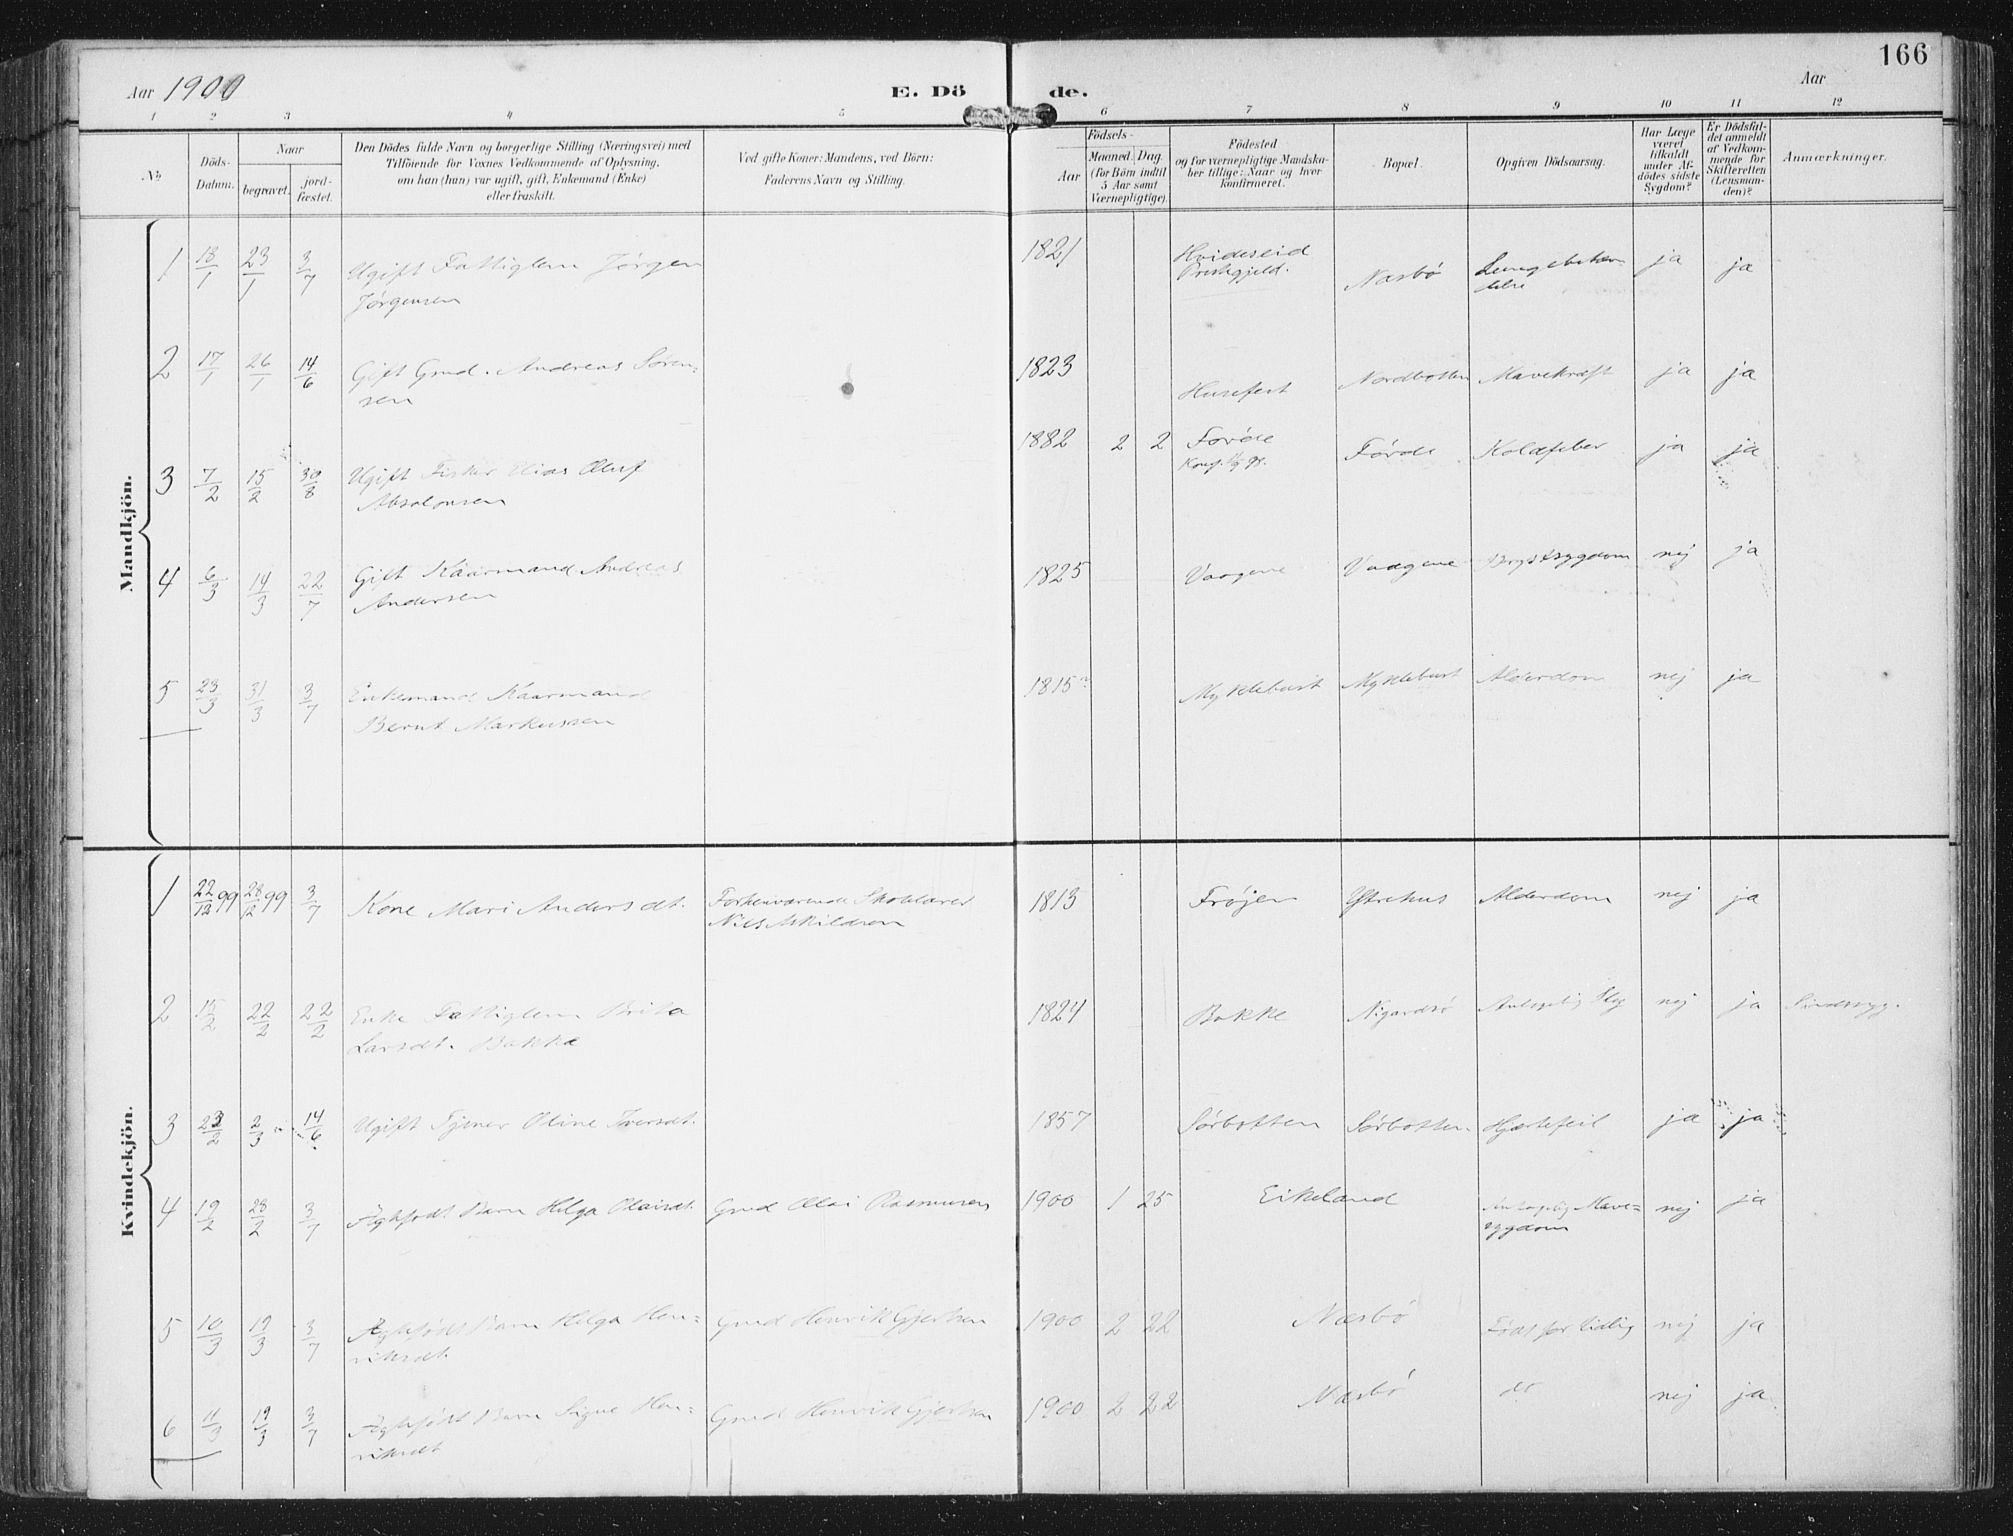 166
Aar 1900
E. Dö
de.
Aar
1 2 3 4 5 6 7 8 9 10 11 12
No.
Döds-
Datum.
Naar
begravet.
jord-
fæstet.
Den Dödes fulde Navn og borgerlige Stilling (Næringsvei) med
Tilföiende for Voxnes Vedkommende af Oplysning,
om han (hun) var ugift, gift, Enkemand (Enke)
eller fraskilt.
Ved gifte Koner: Mandens, ved Börn:
Faderens Navn og Stilling.
Födsels-
Aar
Maaned. Dag.
(for Börn indtil
5 Aar samt
Værnepligtige).
Födested
og for værnepligtige Mandska-
ber tillige: Naar og hvor
konfirmeret.
Bopæl.
Opgiven Dödsaarsag.
Har Læge
været
tilkaldt
under Af-
dödes sidste
Sygdom?
Er Dödsfal-
det anmeldt
af Vedkom-
mende for
Skifteretten
(Lensman-
den)?
Anmærkninger.
Mandkjön.
1 18/1 23/1 3/7 Ugift Fattiglem Jørgen 1821 Hvideseid ja ja
Jørgensen Præstegjeld. Næsbø
2 17/1 26/1 14/6 Gift Gmd. Andreas Søren- 1823 Husefest Nordbotten Mavekræft ja ja
sen
3 7/2 15/2 30/8 Ugift Fisker Elias Oluf 1882 2 2 Førde Førde Koldfeber ja ja
Absalonsen Konf.
4 6/3 14/3 22/7 Gift Kaarmand Andreas 1825 Vaagene Vaagene Brystsygdom nej ja
Andersen
5 23/3 31/3 3/7 Enkemand Kaarmand 1815 Myklebust Myklebust Alderdom nej ja
Bernt Markussen
Kvindekjön.
1 22/12 99 28/12 99 3/7 Kone Mari Andersdt. Forhenværende Skolelærer 1813 Frøjen Ytrehus Alderdom nej ja
Nils Askildsen
2 15/2 22/2 22/2 Enke Fattiglem Brita 1824 Bakke Nigardsø Antagelig Slag nej ja Sindssyg.
Larsdt. Bakke
3 23/2 2/3 14/6 Ugift Tjener Oline Iversdt. 1857 Sørbotten Sørbotten Hjertefeil ja ja
4 19/2 28/2 3/7 Ægtefødt Barn Helga Olaisdt. Gmd Olai Rasmusen 1900 1 25 Eikeland Antagelig Mave- nej ja
sygdom
5 10/3 19/3 3/7 Ægtefødt Barn Helga Hen- Gmd Henrik Gjertsen 1900 2 22 Næsbø Født for tidlig nej ja
riksdt.
6 11/3 19/3 3/7 Ægtefødt Barn Signe Hen- Gmd Henrik Gjertsen 1900 2 22 Næsbø do nej ja
riksdt